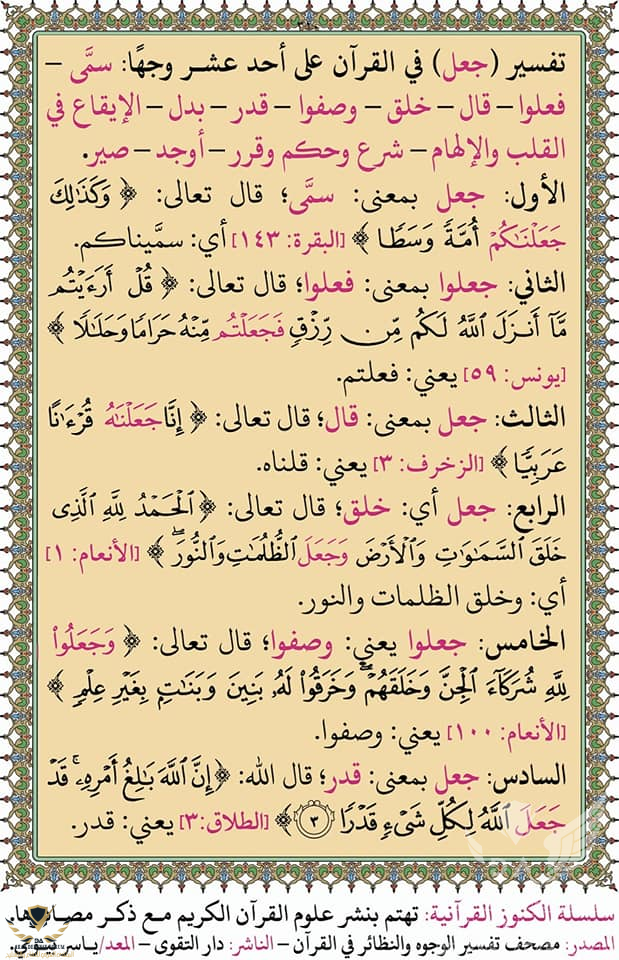 تفسير (جعل) في القرآن على أحد عشر وجهًا: سمَّى –
فعلوا – قال – خلق – وصفوا – قدر – بدل – الإيقاع في
القلب والإلهام – شرع وحكم وقرر – أوجد – صير.
الأول: جعل بمعنى: سمَّى؛ قال تعالى: ﴿ وَكَذَٰلِكَ
جَعَلْنَٰكُمْ أُمَّةً وَسَطًا ﴾ [البقرة: ١٤٣] أي: سمَّيناكم.
الثاني: جعلوا بمعنى: فعلوا؛ قال تعالى: ﴿ قُلْ أَرَءَيْتُم
مَّآ أَنزَلَ ٱللَّهُ لَكُم مِّن رِّزْقٍ فَجَعَلْتُم مِّنْهُ حَرَامًا وَحَلَٰلًا ﴾
[يونس: ٥٩] يعني: فعلتم.
الثالث: جعل بمعنى: قال؛ قال تعالى: ﴿ إِنَّا جَعَلْنَٰهُ قُرْءَٰنًا
عَرَبِيًّا ﴾ [الزخرف: ٣] يعني: قلناه.
الرابع: جعل أي: خلق؛ قال تعالى: ﴿ ٱلْحَمْدُ لِلَّهِ ٱلَّذِى
خَلَقَ ٱلسَّمَٰوَٰتِ وَٱلْأَرْضَ وَجَعَلَ ٱلظُّلُمَٰتِ وَٱلنُّورَ ۖ ﴾ [الأنعام: ١]
أي: وخلق الظلمات والنور.
الخامس: جعلوا يعني: وصفوا؛ قال تعالى: ﴿ وَجَعَلُوا۟
لِلَّهِ شُرَكَآءَ ٱلْجِنَّ وَخَلَقَهُمْ ۖ وَخَرَقُوا۟ لَهُۥ بَنِينَ وَبَنَٰتٍۭ بِغَيْرِ عِلْمٍ ﴾
[الأنعام: ١٠٠] يعني: وصفوا.
السادس: جعل بمعنى: قدر؛ قال الله: ﴿ إِنَّ ٱللَّهَ بَٰلِغُ أَمْرِهِۦ ۚ قَدْ
جَعَلَ ٱللَّهُ لِكُلِّ شَىْءٍ قَدْرًا ٣ ﴾ [الطلاق: ٣] يعني: قدر.
سلسلة الكنوز القرآنية: تهتم بنشر علوم القرآن الكريم مع ذكر مصادرها.
المصدر: مصحف تفسير الوجوه والنظائر في القرآن – الناشر: دار التقوى – المعد/ياسر